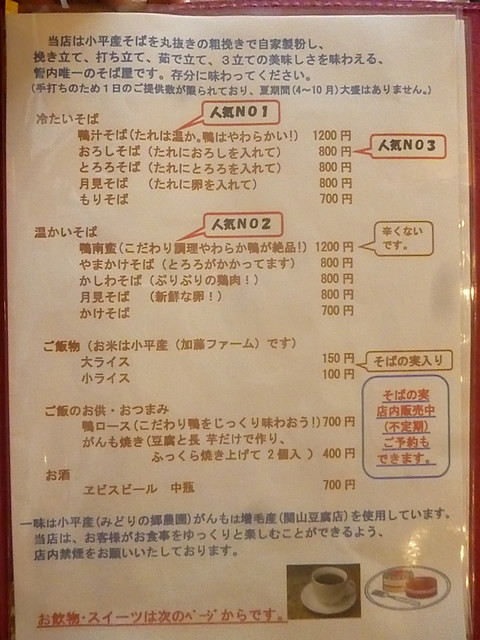 当店は小平産そばを丸抜きの粗挽きで自家製粉し、
挽き立て、打ち立て、茹で立て、3立ての美味しさを味わえる、
管内唯一のそば屋です。存分に味わってください。
(手打ちのため1日のご提供数が限られており、夏期間(4~10月)大盛はありません。)
冷たいそば
人気NO1
鴨汁そば(たれは温か。鴨はやわらかい!) 1200円
おろしそば(たれにおろしを入れて) 800円
人気NO3
とろろそば(たれにとろろを入れて) 800円
月見そば (たれに卵を入れて) 800円
もりそば 700円
温かいそば
人気NO2
鴨南蛮(こだわり調理やわらか鴨が絶品!) 1200円
辛くない
です。
やまかけそば(とろろがかかってます) 800円
かしわそば(ぷりぷりの鶏肉!) 800円
月見そば (新鮮な卵!) 800円
かけそば 700円
ご飯物(お米は小平産(加藤ファーム)です)
大ライス 150円
そばの実入り
小ライス 100円
そばの実
店内販売中
(不定期)
ご予約も
できます。
ご飯のお供・おつまみ
鴨ロース(こだわり鴨をじっくり味わおう!) 700円
がんも焼き(豆腐と長芋だけで作り、
ふっくら焼き上げて2個入) 400円
お酒
ヱビスビール 中瓶 700円
一味は小平産(みどりの郷農園)がんもは増毛産(関山豆腐店)を使用しています。
当店は、お客様がお食事をゆっくりと楽しむことができるよう、
店内禁煙をお願いいたしております。
お飲物・スイーツは次のページからです。